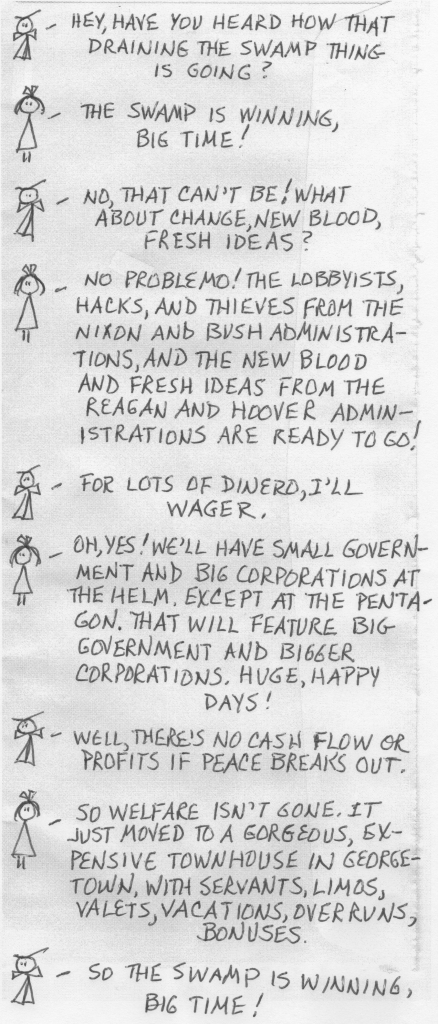 HEY, HAVE YOU HEARD HOW THAT
DRAINING THE SWAMP THING
IS GOING?
THE SWAMP IS WINNING,
BIG TIME!
NO, THAT CAN'T BE! WHAT
ABOUT CHANGE, NEW BLOOD,
FRESH IDEAS?
NO PROBLEMO! THE LOBBYISTS,
HACKS, AND THIEVES FROM THE
NIXON AND BUSH ADMINISTRA-
TIONS, AND THE NEW BLOOD
AND FRESH IDEAS FROM THE
REAGAN AND HOOVER ADMIN-
ISTRATIONS ARE READY TO GO!
FOR LOTS OF DINERO, I'LL
WAGER.
OH, YES! WE'LL HAVE SMALL GOVERN-
MENT AND BIG CORPORATIONS AT
THE HELM. EXCEPT AT THE PENTA-
GON. THAT WILL FEATURE BIG
GOVERNMENT AND BIGGER
CORPORATIONS. HUGE, HAPPY
DAYS!
WELL, THERE'S NO CASH FLOW OR
PROFITS IF PEACE BREAKS OUT.
SO WELFARE ISN'T GONE. IT
JUST MOVED TO A GORGEOUS, EX-
PENSIVE TOWNHOUSE IN GEORGE-
TOWN, WITH SERVANTS, LIMOS,
VALETS, VACATIONS, OVERRUNS,
BONUSES.
SO THE SWAMP IS WINNING,
BIG TIME!